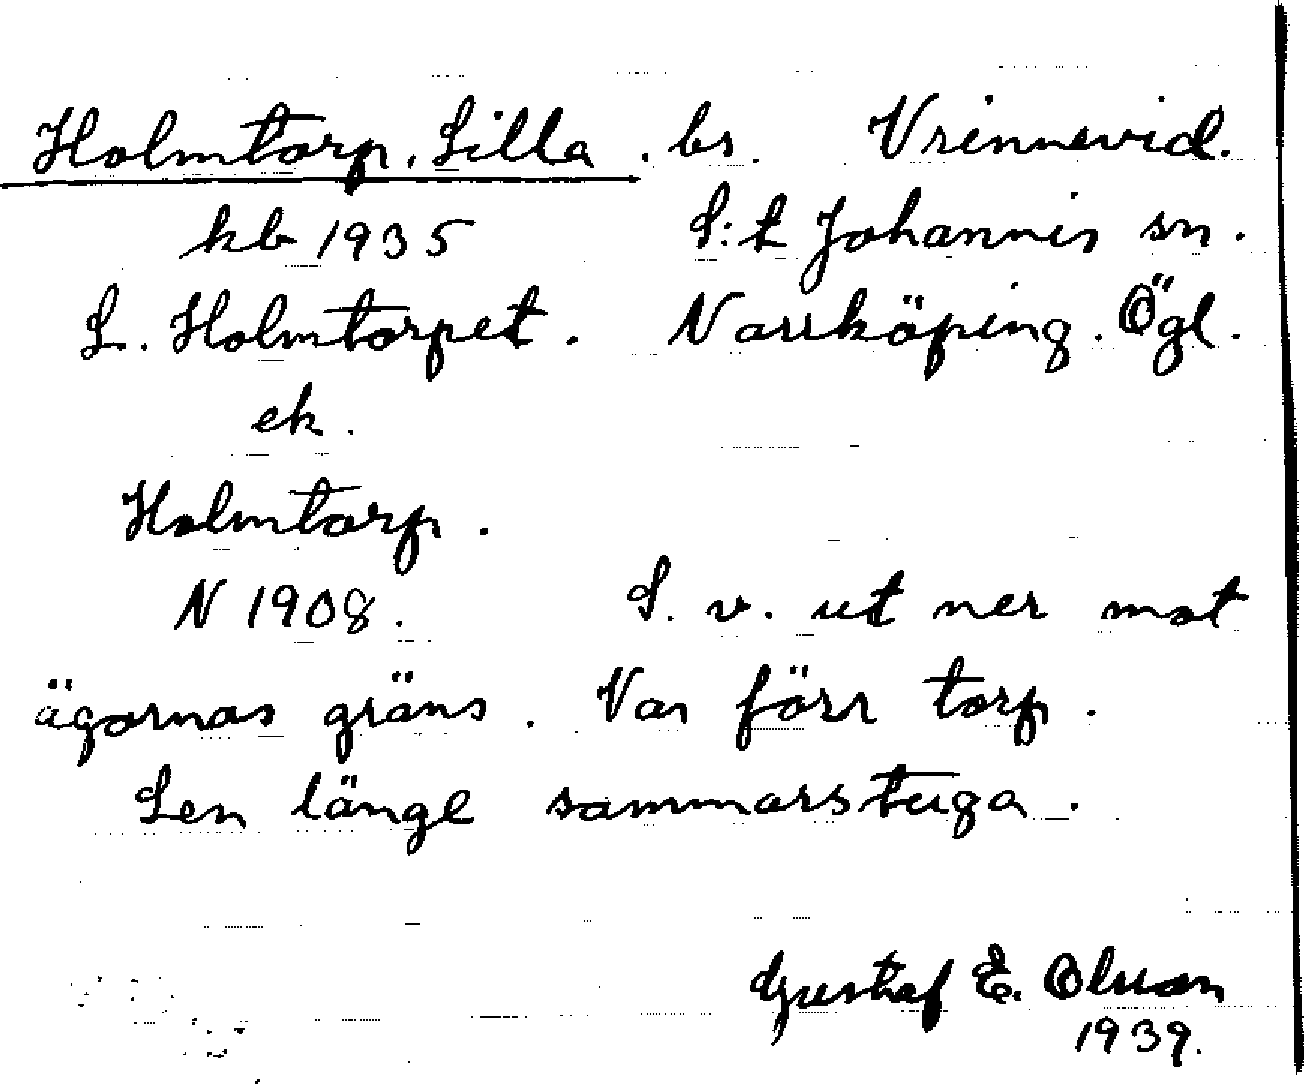 Holmtorp, Lilla. bs. Vrinnevid.
kb 1935 S:t Johannis sn.
L. Holmtorpet. Norrköping. Ögl.
ek.
Holmtorp.
N 1908. S. v. ut ner mot
ägornas gräns. Var förr torp.
Sen länge sommarstuga.
Gustaf E. Olsson
1939.